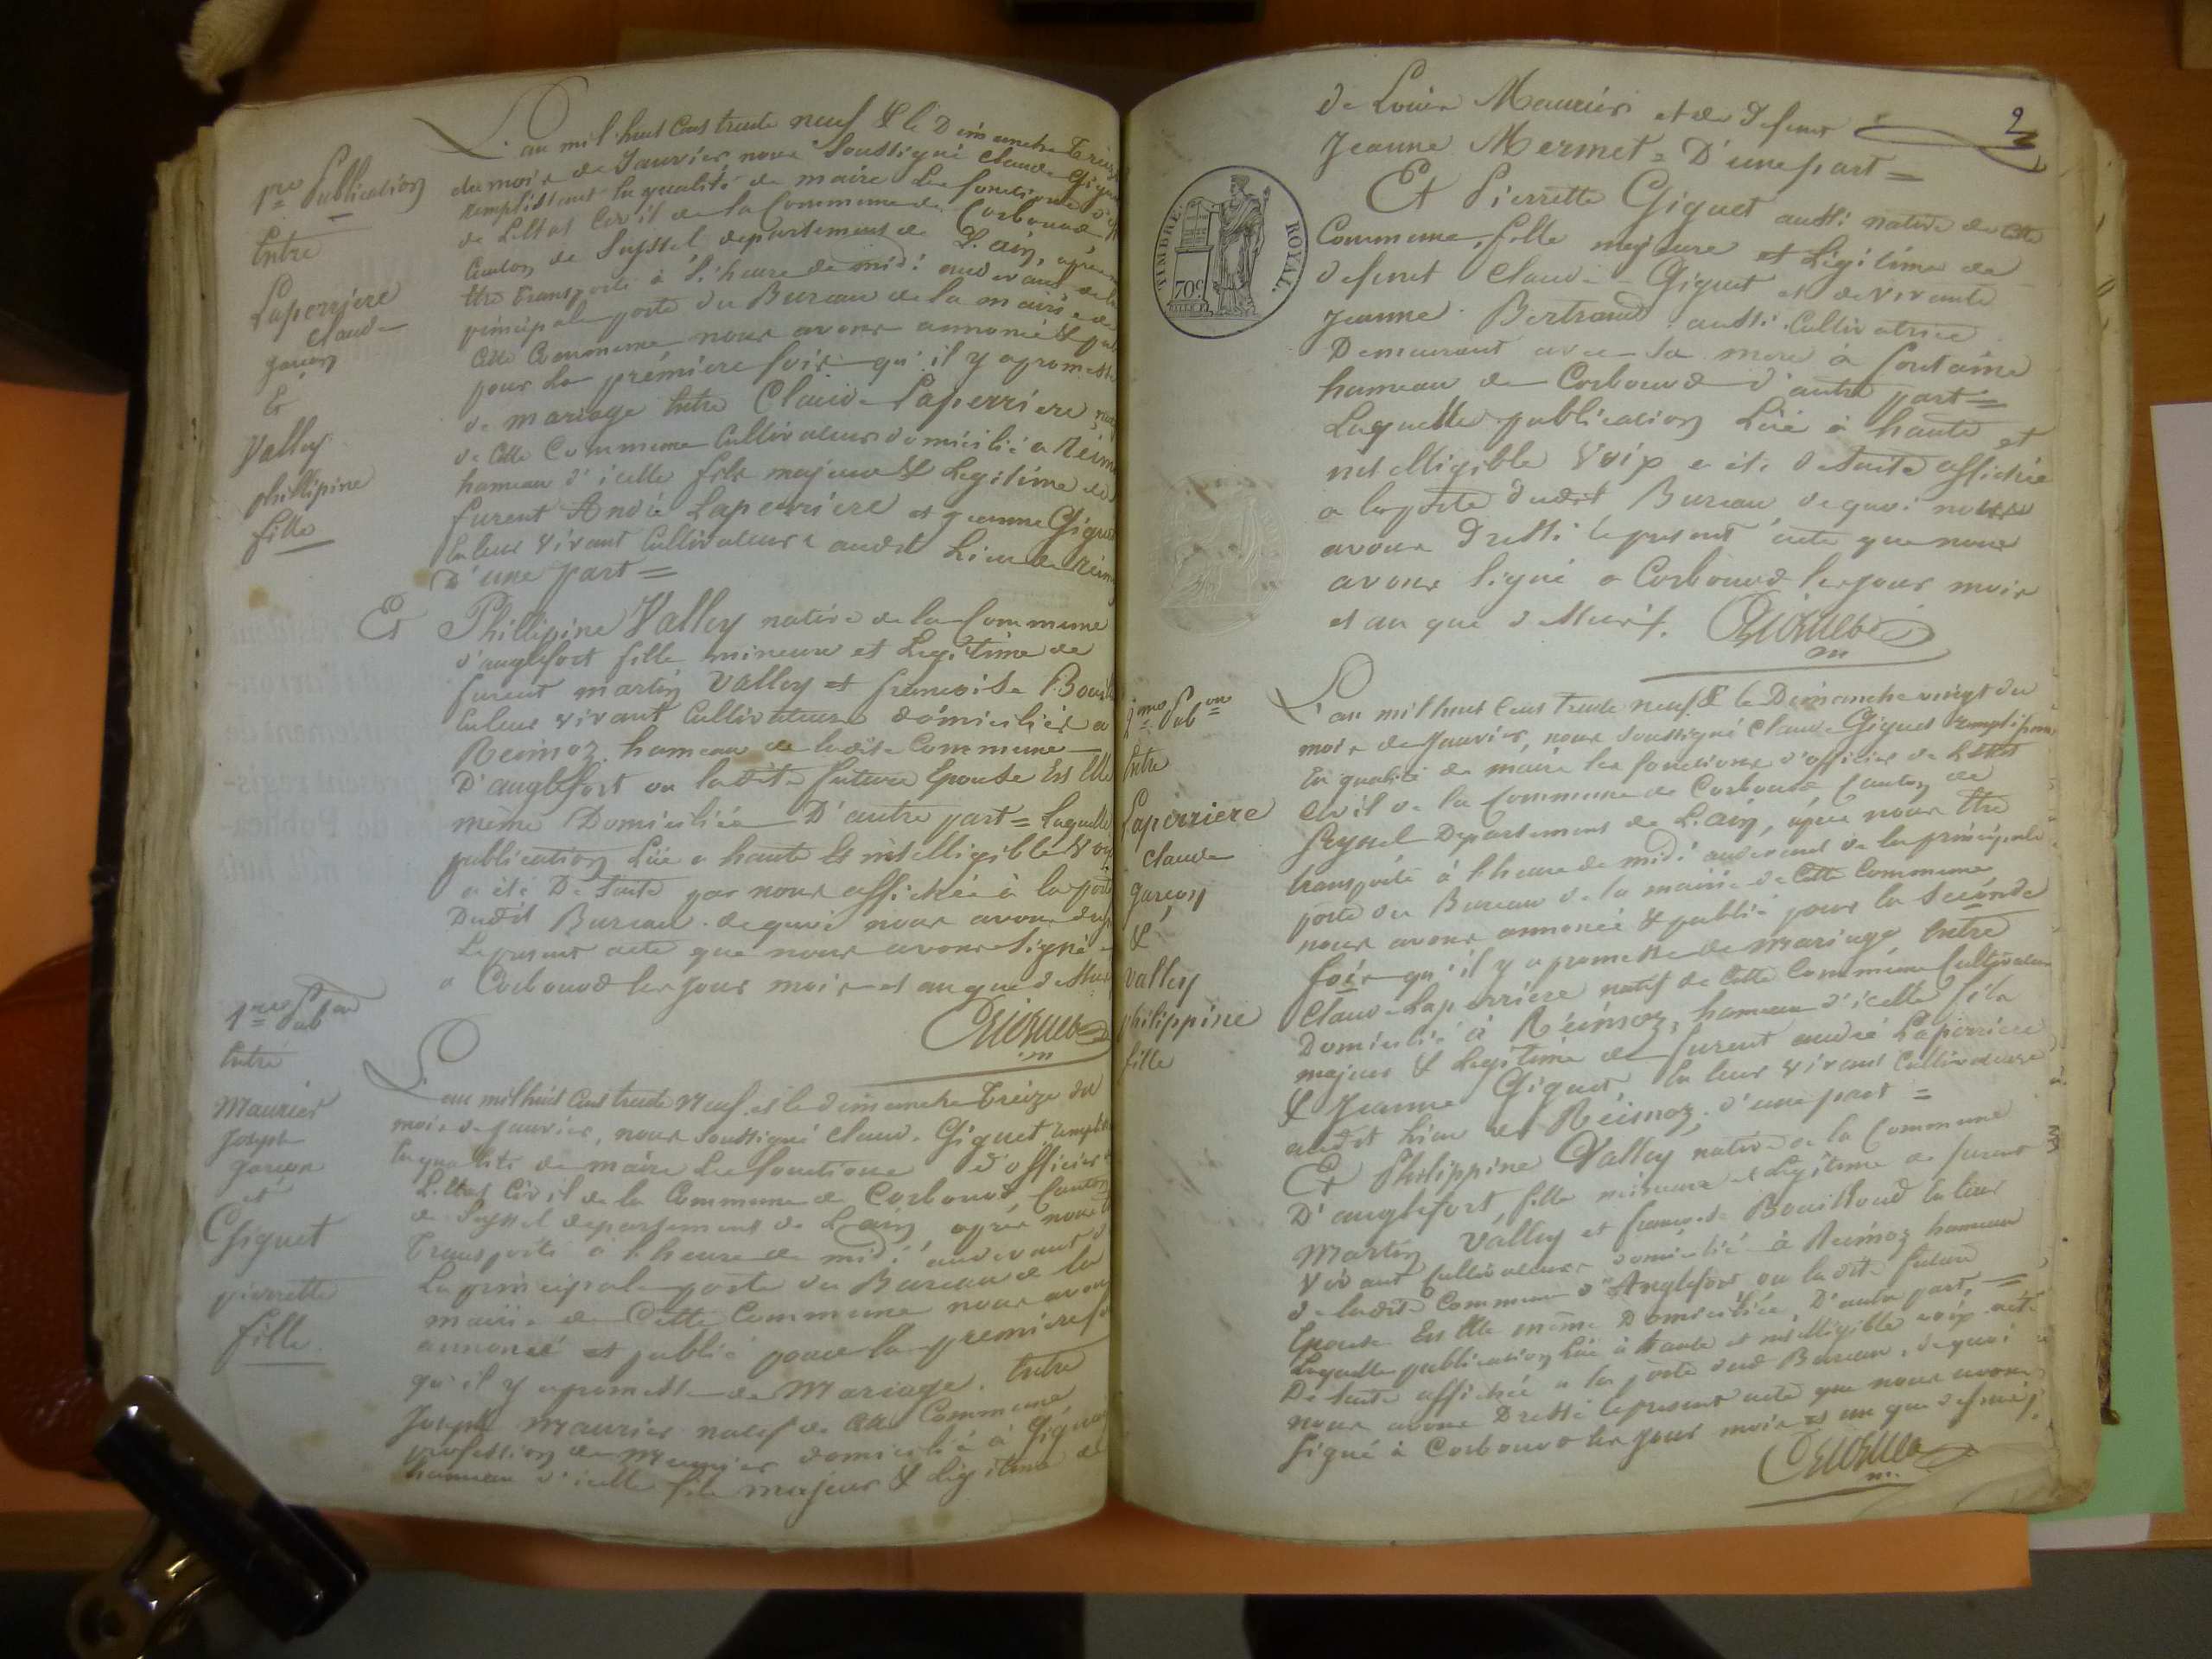 1re Publication
Entre
Laperriere
Claude
garçon
Et
Valley
phillipine
fille
L'an mil huit Cens trente neuf & le Dimanche Treize
du mois de Janvier, nous Soussigné Claude Giguet
remplissant la qualité de maire les fonctions d'off
de L'Etat Civil de la Commune de Corbonod,
Canton de Seyssel, departement de L'ain, après
Etre transporté à l'heure de midi audevant de la
principale porte du Bureau de la mairie de
Cette Commune nous avons annoncé & pub
pour La première fois qu'il y a promesse
de mariage Entre Claude Laperriere natif
de Cette Commune Cultivateur domicilié a Réim
hameau d'icelle fils majeur & Legitime de
furent André Laperriere et Jeanne Giguet
En leur vivant Cultivateurs audit Lieu de Réim
D'une part =
Et Phillipine Valley native de la Commune
d'anglefort fille mineure et Legitime de
furent martin Valley et francoise Bouill
En leur vivant Cultivateurs domiciliés a
Reimoz hameau de ladite Commune
D'anglefort ou ladite future Epouse Est Elle
même Domiciliée D'autre part = Laquelle
publication Lüe a haute Et intelligible voix
a été De Suite par nous affichée à la porte
Dudit Bureau de quoi nous avons dressé
Le present acte que nous avons Signé
a Corbonod les jour mois et an que dessus
Giguet
m
1re Pub on
Entre
Maurier
Joseph
garçon
et
Giguet
pierrette
fille
L'an mil huit Cens trente Neuf et le dimanche Treize du
mois de Janvier, nous Soussigné Claude Giguet, rempliss
En qualité de maire Les fonctions d'officier
L'Etat Civil de la Commune de Corbonod Canton
de Seyssel departement de L'ain, après nous
Transporté a l'heure de midi audevant de
La principale porte du Bureau de la
mairie de Cette Commune nous avons
annoncé et publié pour la premiere f
qu'il y a promesse de Mariage. Entre
Joseph Maurier natif de Cette Commune,
profession de Meunier domicilié à Gignez
hameau d'icelle fils majeur & Legitime de
2
de Louis Maurier et de Defunte
Jeanne Mermet = D'une part =
Et Pierrette Giguet aussi native de Cette
Commune, fille majeure et Légitime de
defunt Claude Giguet et de vivante
Jeanne Bertrand aussi Cultivatrice
Demeurant avec sa mere à fontaine
hameau de Corbonod d'autre part =
Laquelle publication Lüe à haute et
intelligible Voix a été De Suite affichée
a la porte dudit Bureau de quoi nous
avons Dressé le present acte que nous
avons Signé a Corbonod les jour mois
et an que dessus.
Giguet
m
TIMBRE ROYAL.
70c
2me Pub on
Entre
Laperriere
Claude
garçon
&
Valley
philippine
fille
L'an mil huit Cens trente neuf & le Dimanche vingt du
mois de Janvier, nous soussigné Claude Giguet remplissant
En qualité de maire les fonctions d'officier de L'Etat
Civil de la Commune de Corbonod Canton de
Seyssel Departement de L'ain, après nous Etre
transporté à l'heure de midi audevant de la principale
porte du Bureau de la mairie de Cette Commune
nous avons annoncé & publié pour la Seconde
fois qu'il y a promesse de mariage Entre
Claude Laperriere natif de Cette Commune Cultivateur
Domicilié à Réimoz, hameau d'icelle fils
majeur & Legitime de furent andré Laperriere
& Jeanne Giguet En leur vivant Cultivateurs
audit Lieu de Réimoz, d'une part =
Et Philippine Valley native de la Commune
D'anglefort, fille mineure et Légitime de furent
Martin Valley et francoise Bouilloud En leur
Vivant Cultivateurs domicilié à Reimoz hameau
de ladite Commune d'Anglefort ou ladite future
Epouse Est Elle même Domiciliée, D'autre part, =
Laquelle publication Lüe à haute et intelligible voix a été
De Suite affichée a la porte dud Bureau, de quoi
nous avons Dressé le present acte que nous avons
Signé à Corbonod les jour mois et an que dessus.
Giguet
m